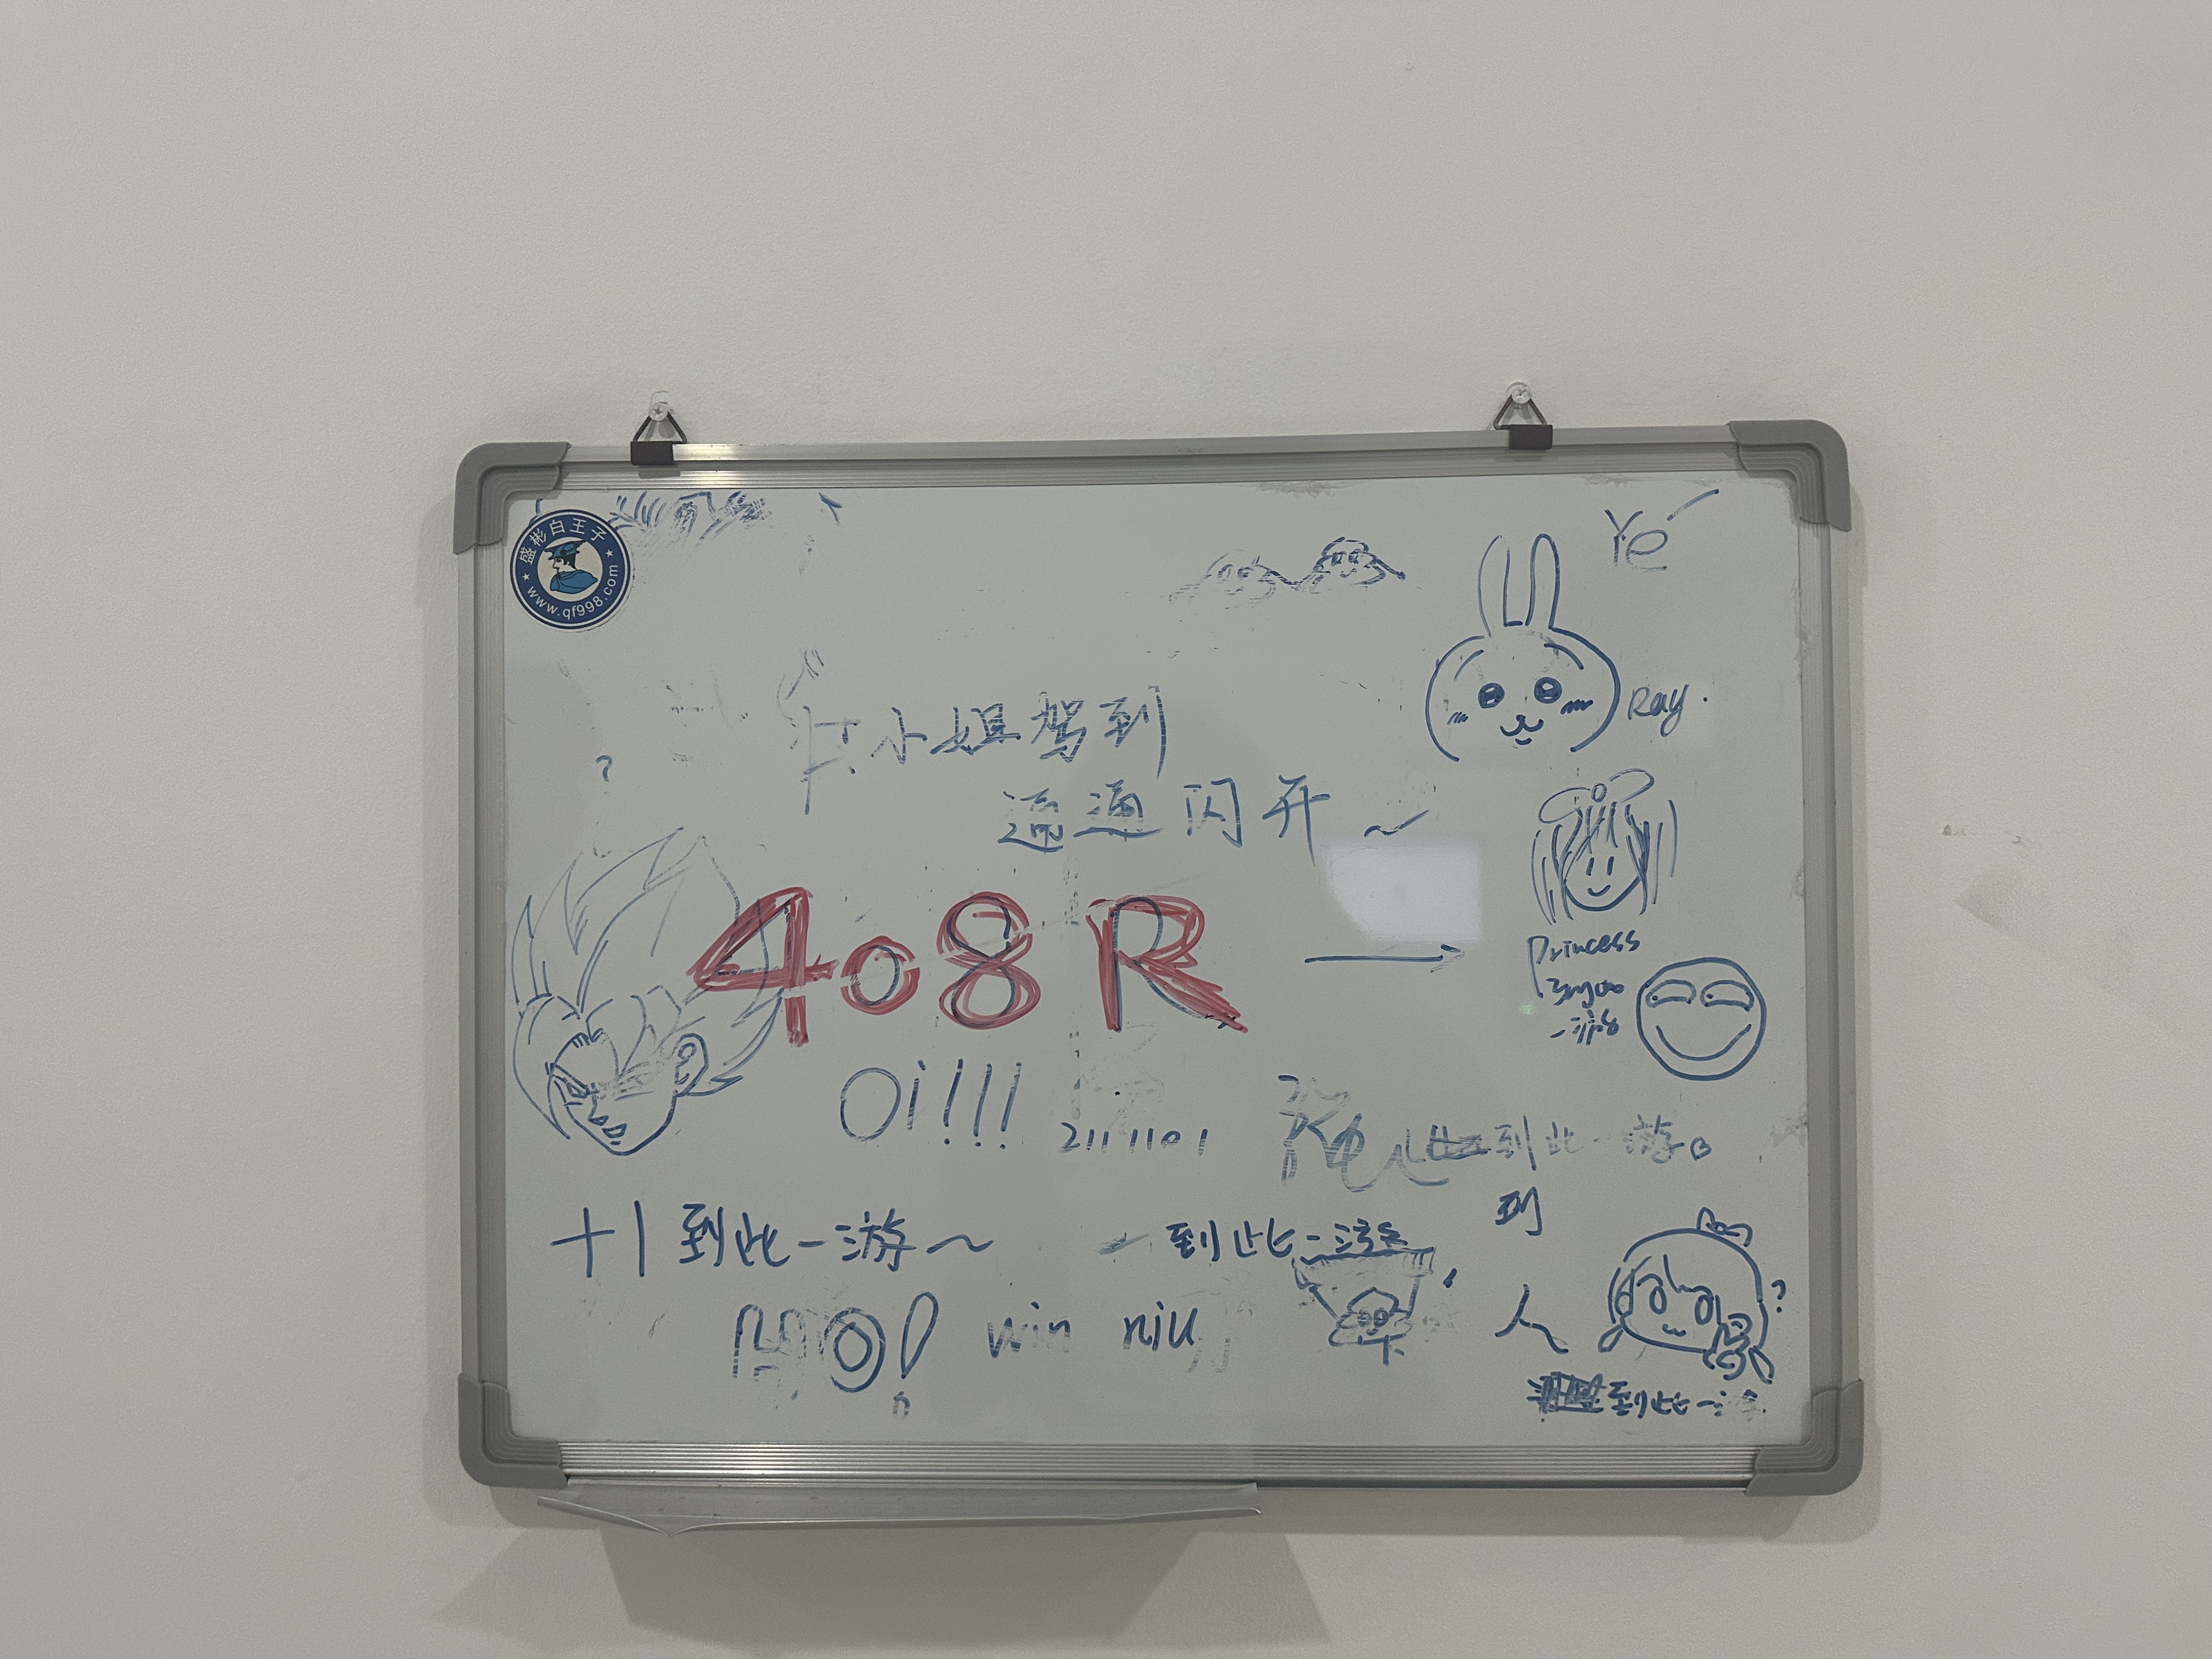 盛彬白王子
www.qf998.com
Ye
Ray.
小姐驾到
通通闪开~
408R
Princess
一游
Oi!!!
2111101
到此一游。
十|到此一游~
到此一游
到
人
?
win niu
到此一游.